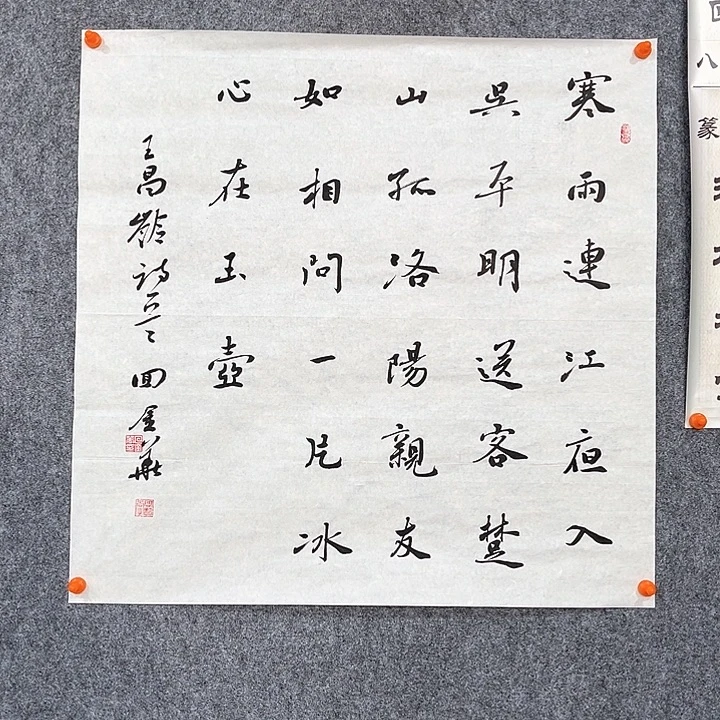 寒雨連江夜入
吳平明送客楚
山孤洛陽親友
如相問一片冰
心在玉壺
王昌齡詩一首 回金華
八
篆